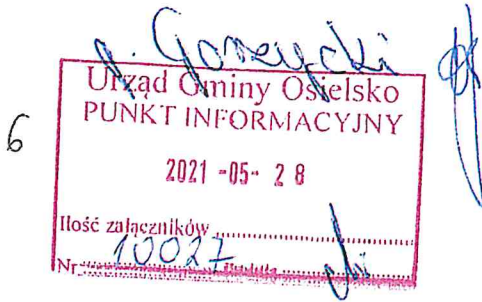 p. Gonzycki
Urząd Gminy Osielsko
PUNKT INFORMACYJNY
6
2021 -05- 2 8
Ilość załączników
Nr 10027